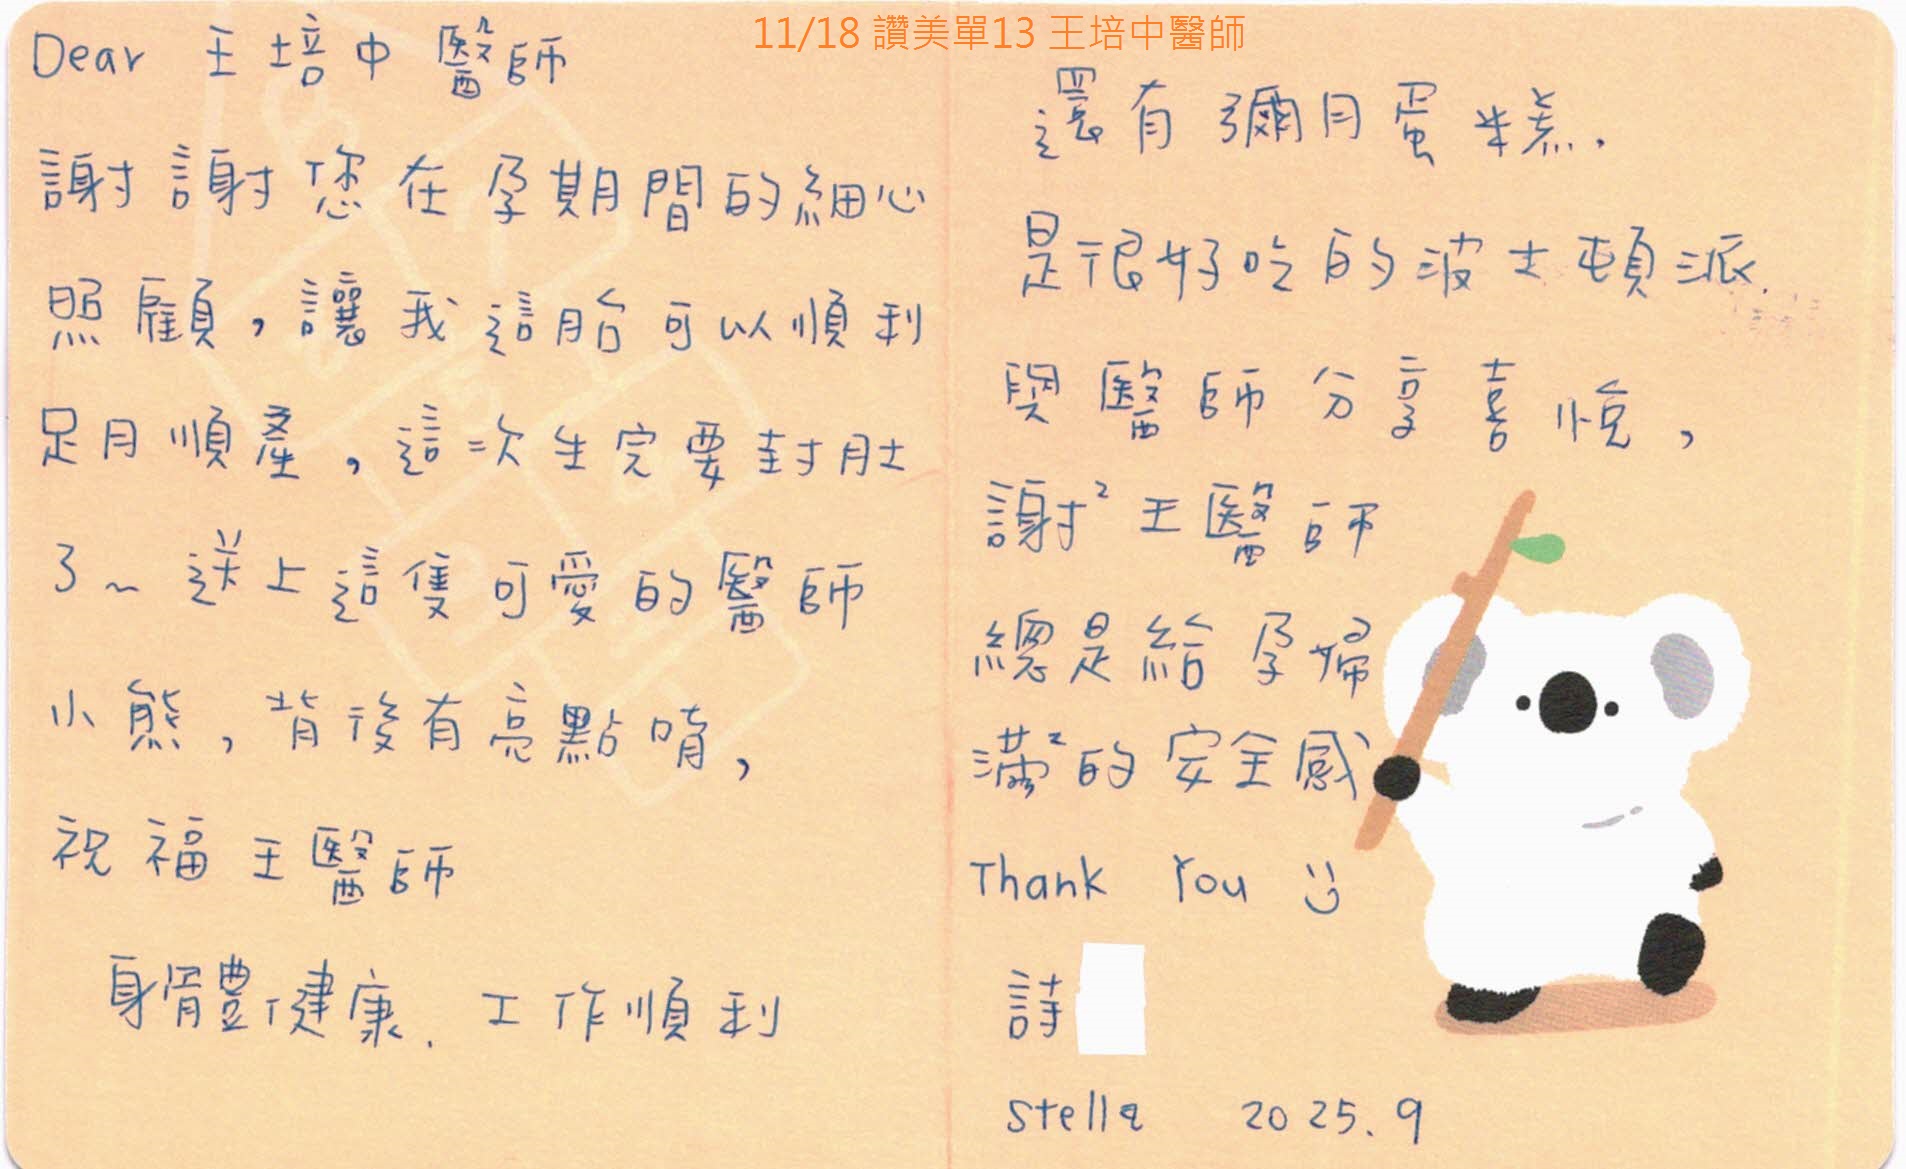 11/18 讚美單13 王培中醫師
Dear 王培中 醫師
謝謝您在孕期間的細心
照顧，讓我這胎可以順利
足月順產，這次生完要封肚
了~ 送上這隻可愛的醫師
小熊，背後有亮點唷，
祝福王醫師
身體健康. 工作順利
還有彌月蛋糕.
是很好吃的波士頓派.
與醫師分享喜悅，
謝² 王醫師
總是給孕婦
滿²的安全感
Thank You :)
詩
Stella 2025.9